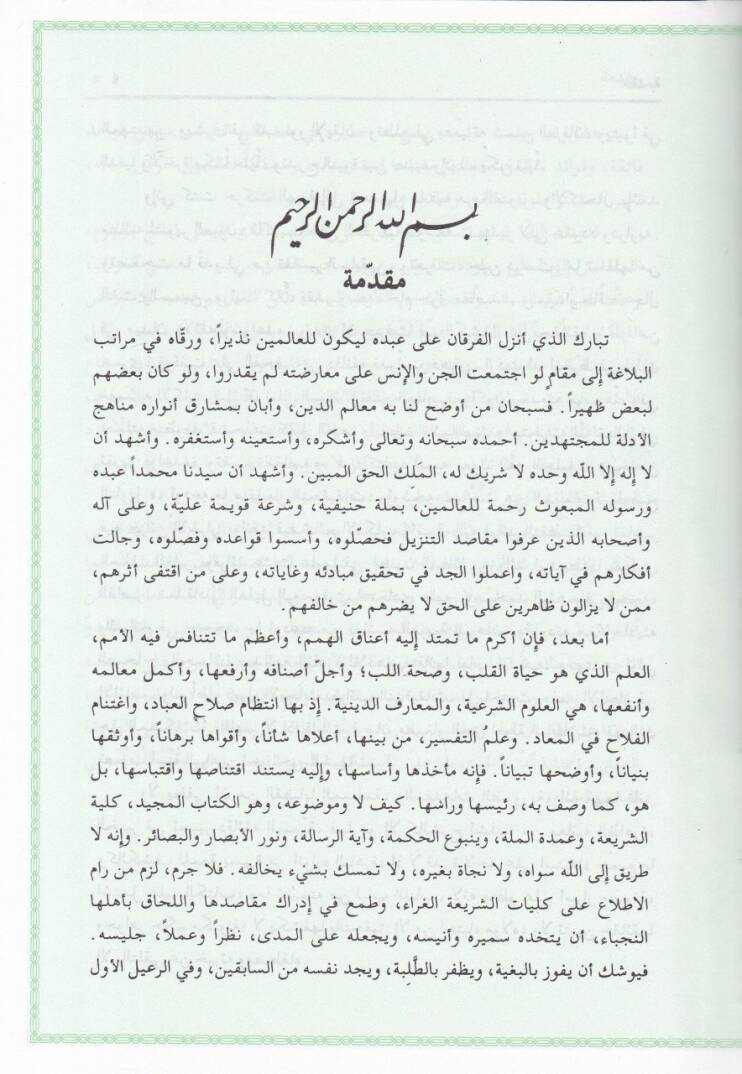 بسم الله الرحمن الرحيم
مقدّمة
تبارك الذي أنزل الفرقان على عبده ليكون للعالمين نذيراً، ورقاه في مراتب
البلاغة إلى مقامٍ لو اجتمعت الجن والإنس على معارضته لم يقدروا، ولو كان بعضهم
لبعض ظهيراً. فسبحان من أوضح لنا به معالم الدين، وأبان بمشارق أنواره مناهج
الأدلة للمجتهدين. أحمده سبحانه وتعالى وأشكره، وأستعينه وأستغفره. وأشهد أن
لا إله إلا الله وحده لا شريك له، الملِك الحق المبين. وأشهد أن سيدنا محمداً عبده
ورسوله المبعوث رحمة للعالمين، بملة حنيفية، وشرعة قويمة عليّة، وعلى آله
وأصحابه الذين عرفوا مقاصد التنزيل فحصّلوه، وأسسوا قواعده وفصّلوه، وجالت
أفكارهم في آياته، واعملوا الجد في تحقيق مبادئه وغاياته، وعلى من اقتفى أثرهم،
ممن لا يزالون ظاهرين على الحق لا يضرهم من خالفهم.
أما بعد، فإن أكرم ما تمتد إليه أعناق الهمم، وأعظم ما تتنافس فيه الأمم،
العلم الذي هو حياة القلب، وصحة اللب؛ وأجلّ أصنافه وأرفعها، وأكمل معالمه
وأنفعها، هي العلوم الشرعية، والمعارف الدينية. إذ بها انتظام صلاح العباد، واغتنام
الفلاح في المعاد. وعلمُ التفسير، من بينها، أعلاها شأناً، وأقواها برهاناً، وأوثقها
بنياناً، وأوضحها تبياناً. فإنه مأخذها وأساسها، وإليه يستند اقتناصها واقتباسها، بل
هو، كما وصف به، رئيسها وراشها. كيف لا وموضوعه، وهو الكتاب المجيد، كلية
الشريعة، وعمدة الملة، وينبوع الحكمة، وآية الرسالة، ونور الأبصار والبصائر. وإنه لا
طريق إلى الله سواه، ولا نجاة بغيره، ولا تمسك بشيء يخالفه. فلا جرم، لزم من رام
الاطلاع على كليات الشريعة الغراء، وطمع في إدراك مقاصدها واللحاق بأهلها
النجباء، أن يتخده سميره وأنيسه، ويجعله على المدى، نظراً وعملاً، جليسه.
فيوشك أن يفوز بالبغية، ويظفر بالطَّلِبة، ويجد نفسه من السابقين، وفي الرعيل الأول